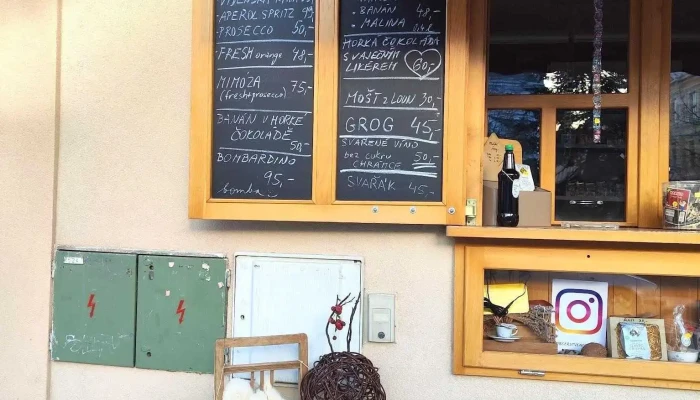 -APEROL SPRITZ 99
-PROSECCO 50,-
FRESH orange 48,-
MIMÓZA 75,-
(fresh+prosecco)
BANÁN V HORKÉ
ČOKOLÁDĚ
50,-
BOMBARDINO
95,-
bomba
• BANÁN 48,-
• MALINA 0,4l
HORKÁ ČOKOLÁDA
S VAJEČNÝM
LIKÉREM 60,-
MOŠT Z LOUN 30,-
GROG 45,-
SVAŘENÉ VÍNO
bez cukru 50,-
CHRÁMCE
SVAŘÁK 45,-